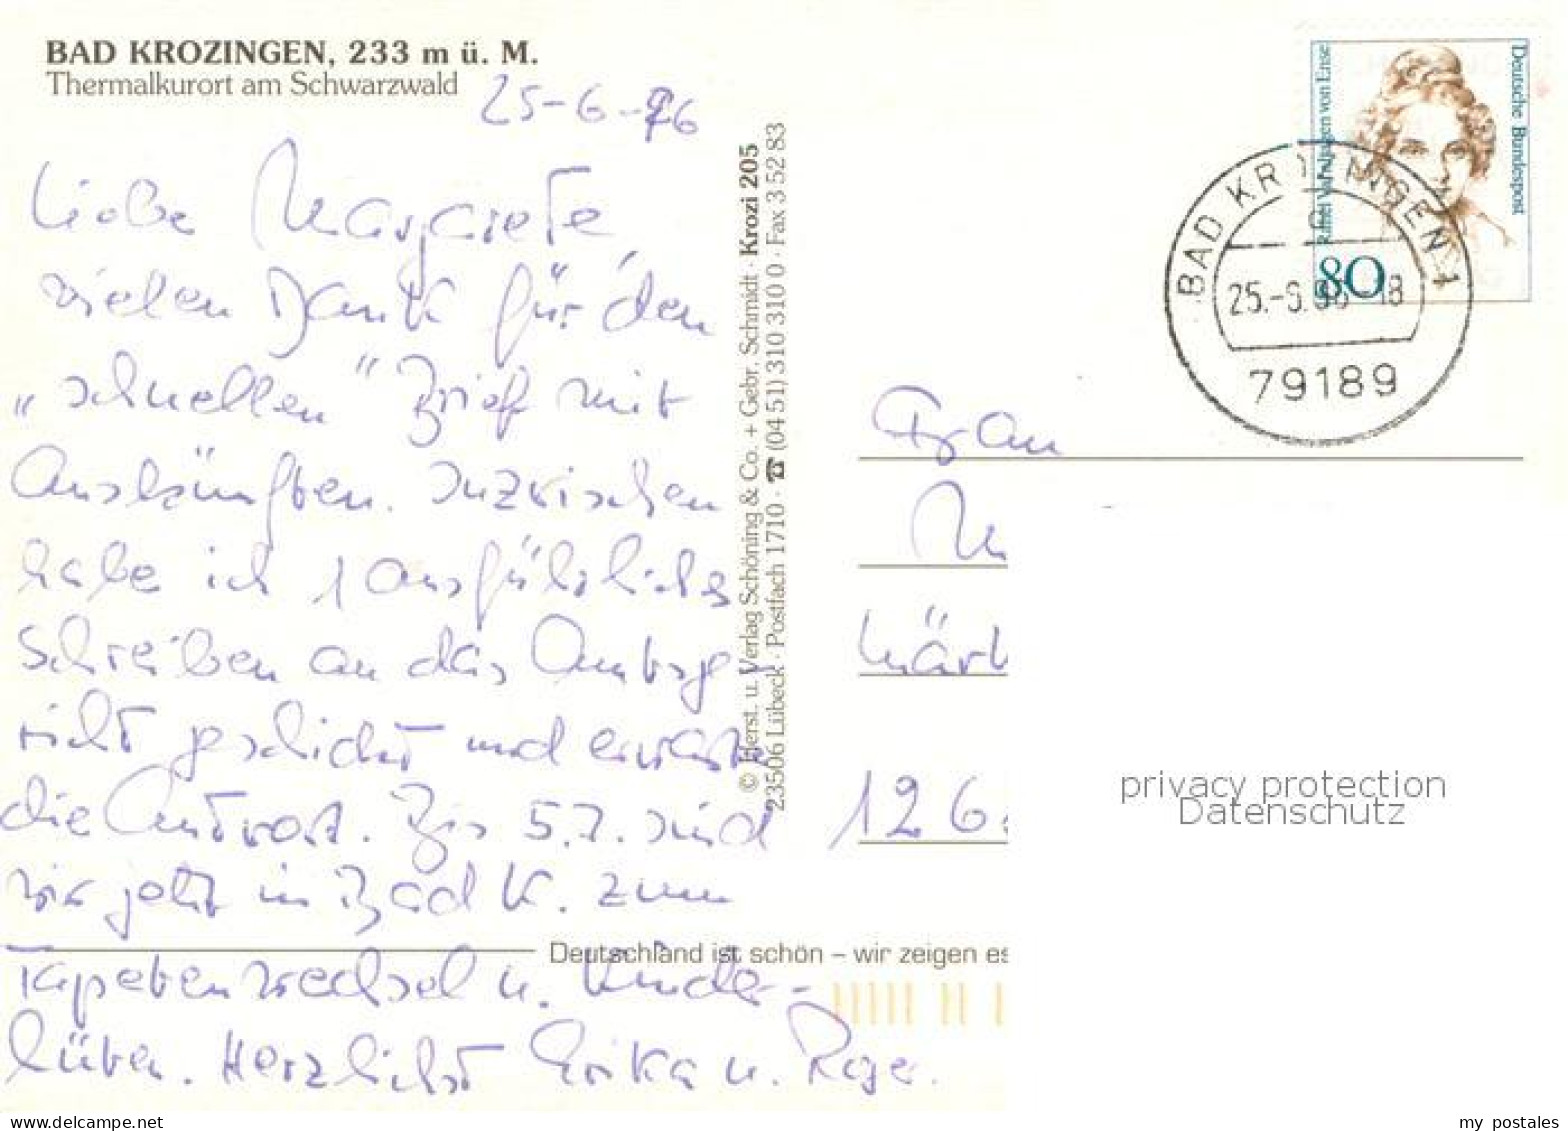 BAD KROZINGEN, 233 m ü. M.
Thermalkurort am Schwarzwald
25-6-96
Liebe Margarete,
vielen Dank für den
„schnellen" Brief mit
Auskünften. Inzwischen
habe ich 1 ausführliches
Schreiben an das Amtsge-
richt geschickt und erwarte
die Antwort. Bis 5.7. sind
wir jetzt in Bad K. zum
Tapetenwechsel u. Kinder-
hüten. Herzlichst Erika u.
© Herst. u. Verlag Schöning & Co. + Gebr. Schmidt · Krozi 205
23506 Lübeck · Postfach 1710 · ☎ (04 51) 310 310 0 · Fax 3 52 83
Deutschland ist schön – wir zeigen es
Deutsche Bundespost
Rahel Varnhagen von Ense
80
BAD KROZINGEN 1
c
25.-6.96-18
79189
Frau
Märk
126
privacy protection
Datenschutz
my postales